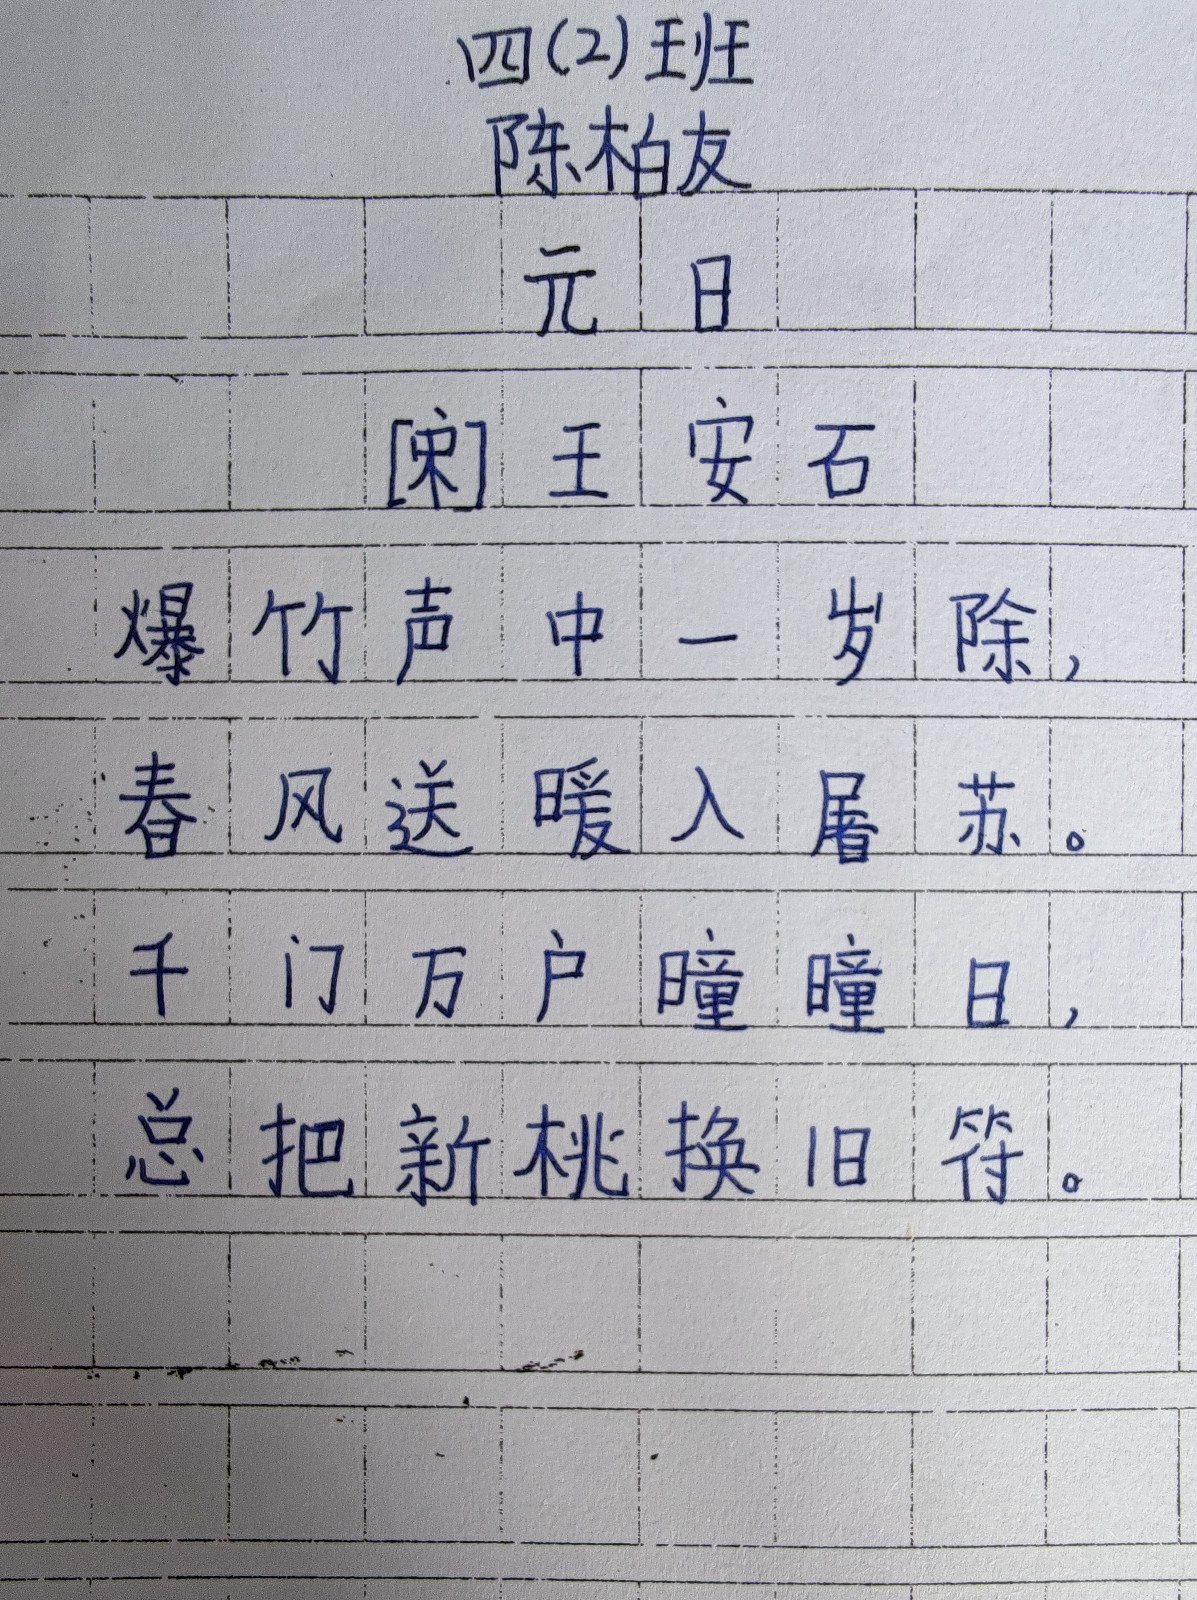 四(2)班
陈柏友
元日
[宋]王安石
爆竹声中一岁除,
春风送暖入屠苏。
千门万户曈曈日,
总把新桃换旧符。